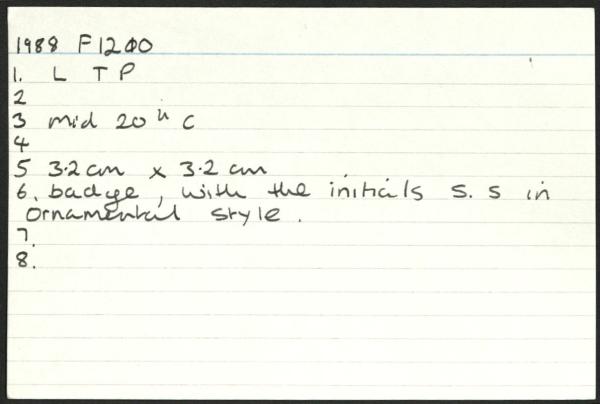 1988 F1200
1. L T P
2
3 mid 20th C
4
5 3.2cm x 3.2 cm
6. badge, with the initials S. S in
ornamental style.
7.
8.